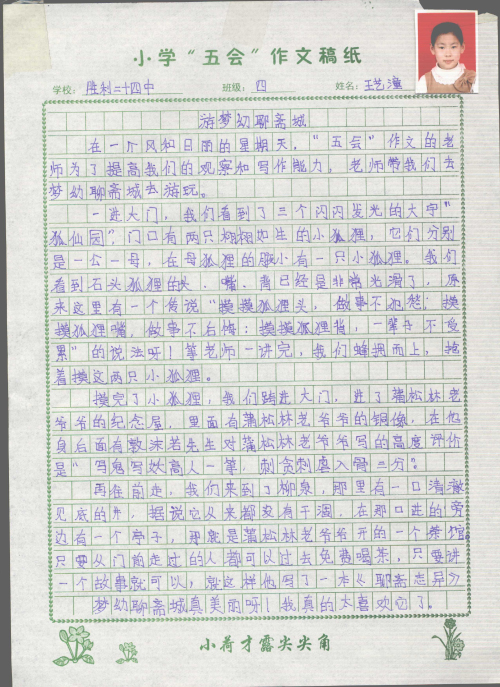 小学“五会”作文稿纸
学校：胜利二十四中 班级：四 姓名：王艺潼
游梦幻聊斋城
在一个风和日丽的星期天，“五会”作文的老
师为了提高我们的观察和写作能力，老师带我们去
梦幻聊斋城去游玩。
一进大门，我们看到了三个闪闪发光的大字“
狐仙园”，门口有两只栩栩如生的小狐狸，它们分别
是一公一母，在母狐狸的脚小有一只小狐狸。我们
看到石头狐狸的头、嘴、背已经是非常光滑了，原
来这里有一个传说“摸摸狐狸头，做事不犯愁；摸
摸狐狸嘴，做事不后悔；摸摸狐狸背，一辈子不受
累”的说法呀！等老师一讲完，我们蜂拥而上，抢
着摸这两只小狐狸。
摸完了小狐狸，我们踏进大门，进了蒲松林老
爷爷的纪念屋，里面有蒲松林老爷爷的铜像，在他
身后面有郭沫若先生对蒲松林老爷爷写的高度评价
是“写鬼写妖高人一筹，刺贪刺虐入骨三分”。
再往前走，我们来到了柳泉，那里有一口清澈
见底的井，据说它从来都没有干涸，在那口井的旁
边有一个亭子，那就是蒲松林老爷爷开的一个茶馆
只要从门前走过的人都可以过去免费喝茶，只要讲
一个故事就可以，就这样他写了一本《聊斋志异》
梦幻聊斋城真美丽呀！我真的太喜欢它了。
小荷才露尖尖角